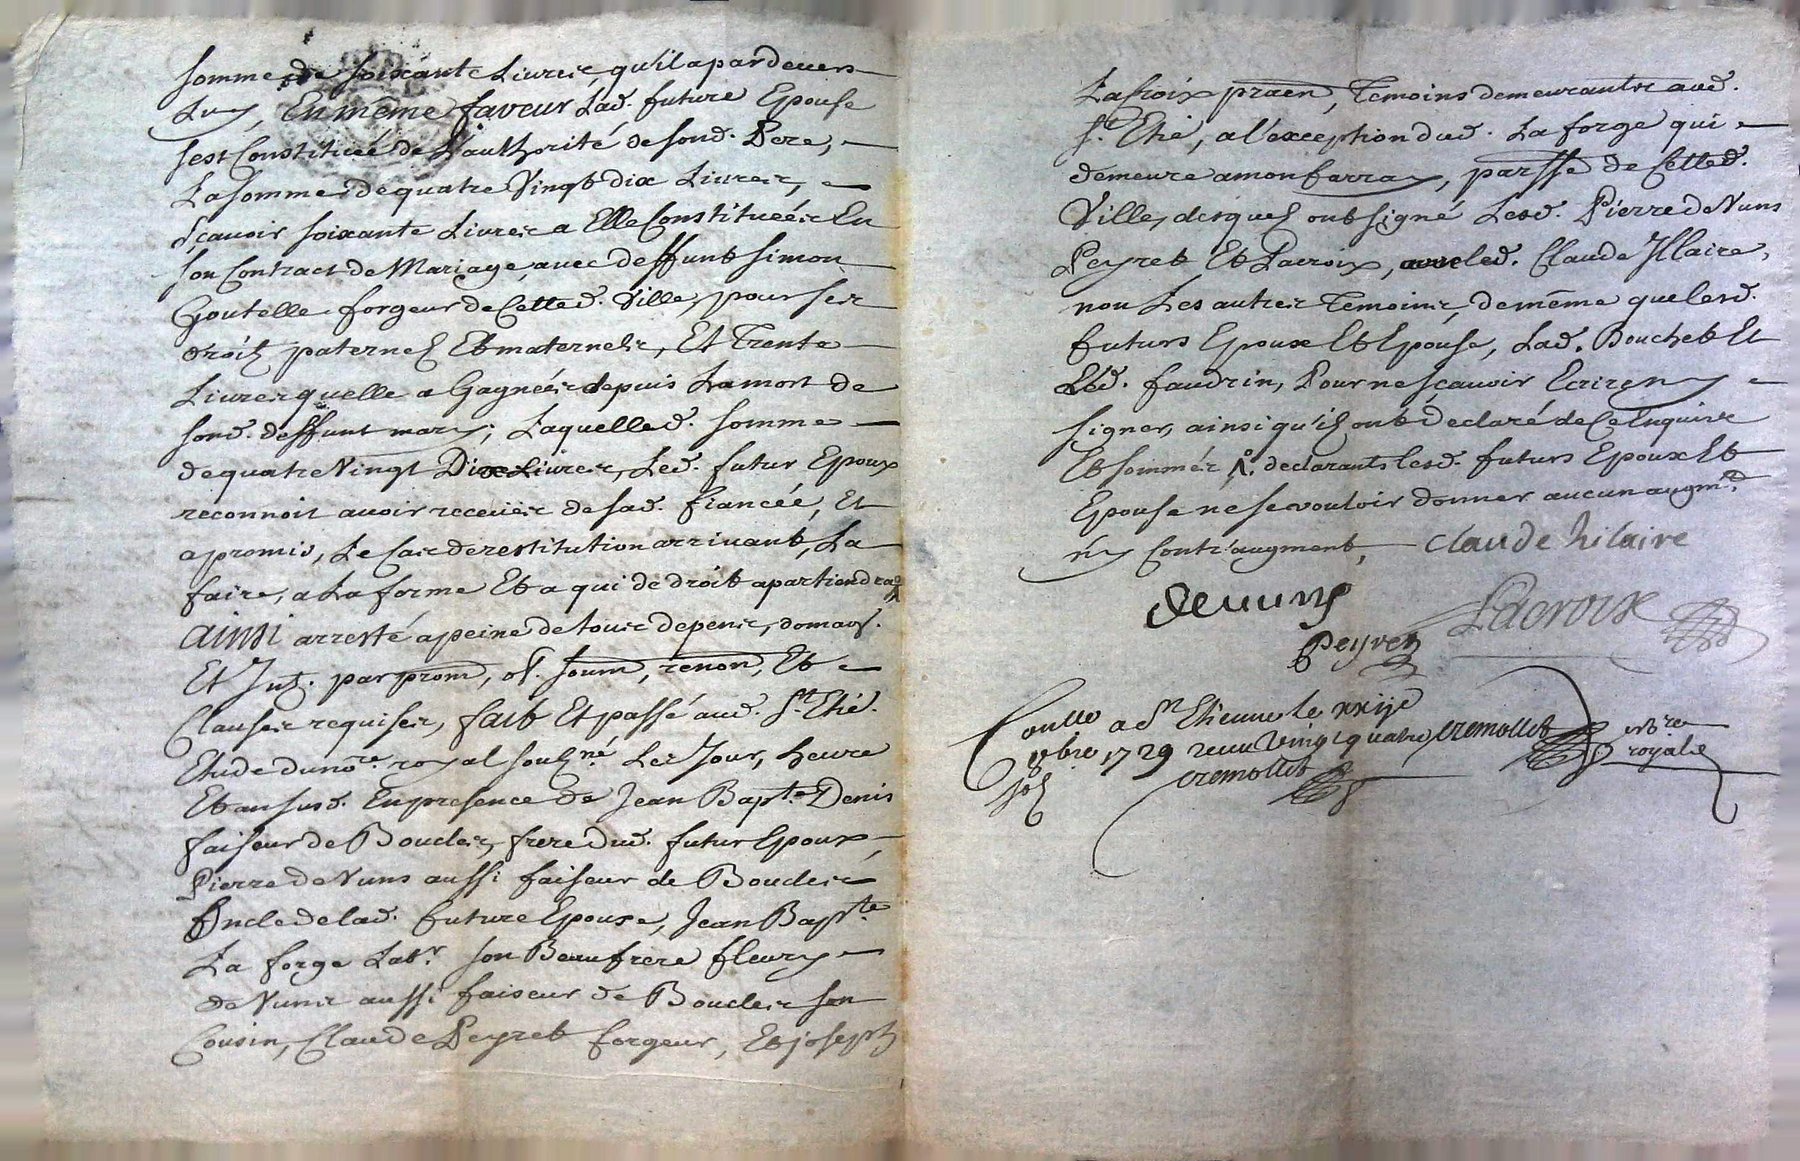 somme de soixante Livres, qu'il a pardevers
Luy, En même faveur Lad. future Epouse
s'est Constituée de L'authorité de sond. Pere,
La somme, de quatre Vingt dix Livres,
sçavoir soixante Livres a Elle Constituées En
son Contract de Mariage, avec deffunt simon
Goutelle forgeur de Cetted. Ville, pour ses
droits paternels Et maternels, Et Trente
Livres quelle a Gagnées depuis La mort de
sond. deffunt mary; Laquelled. somme
de quatre Vingt Dix Livres, Led. futur Epoux
reconnoit avoir receües de sad. fiancée, Et
a promis, Le Cas de restitution arrivant, La
faire, a La forme Et a qui de droit apartiendra
ainsi arresté a peine de tous depens, domages.
Et Int. par prom, ob. soum, renon, Et
Clauses requises, fait Et passé aud. St. Etie.
Etude du nore. royal soussné. Les Jour, heure
Et an susd. En presence de Jean Bapte. Denis
faiseur de Boucles, frere Dud. futur Epoux,
Pierre de Vuns aussi faiseur de Boucles
Oncle de lad. future Epouse, Jean Bapte.
La forge Labr. son Beaufrere fleury
de Vuns aussi faiseur de Boucles son
Cousin, Claude Peyret forgeur, Et joseph
La Croix praen, Temoins demeurants aud.
St. Etie, a l'exception dud. La forge qui
demeure a monfarray, parsse de Cetted.
Ville, desquels ont signé Lesd. Pierre de Vuns
Peyret Et Lacroix, avec led. Claude Hlaire,
non Les autres Temoins, de même que lesd.
futurs Epoux Et Epouse, Lad. Bouchet Et
Led. faudrin, Pour ne sçavoir Ecrire ny
signer, ainsi qu'ils ont Declaré de Ce Enquis
Et sommés declarants lesd. futurs Epoux Et
Epouse ne se vouloir donner aucun augmt.
ny Contr'augment, Claude hilaire
devuns
Peyret
Lacroix
Conllé a St Etienne le xxije
9bre 1729 receu Vingt quatre
sols
Cremollet
nore
royale
Cremollet